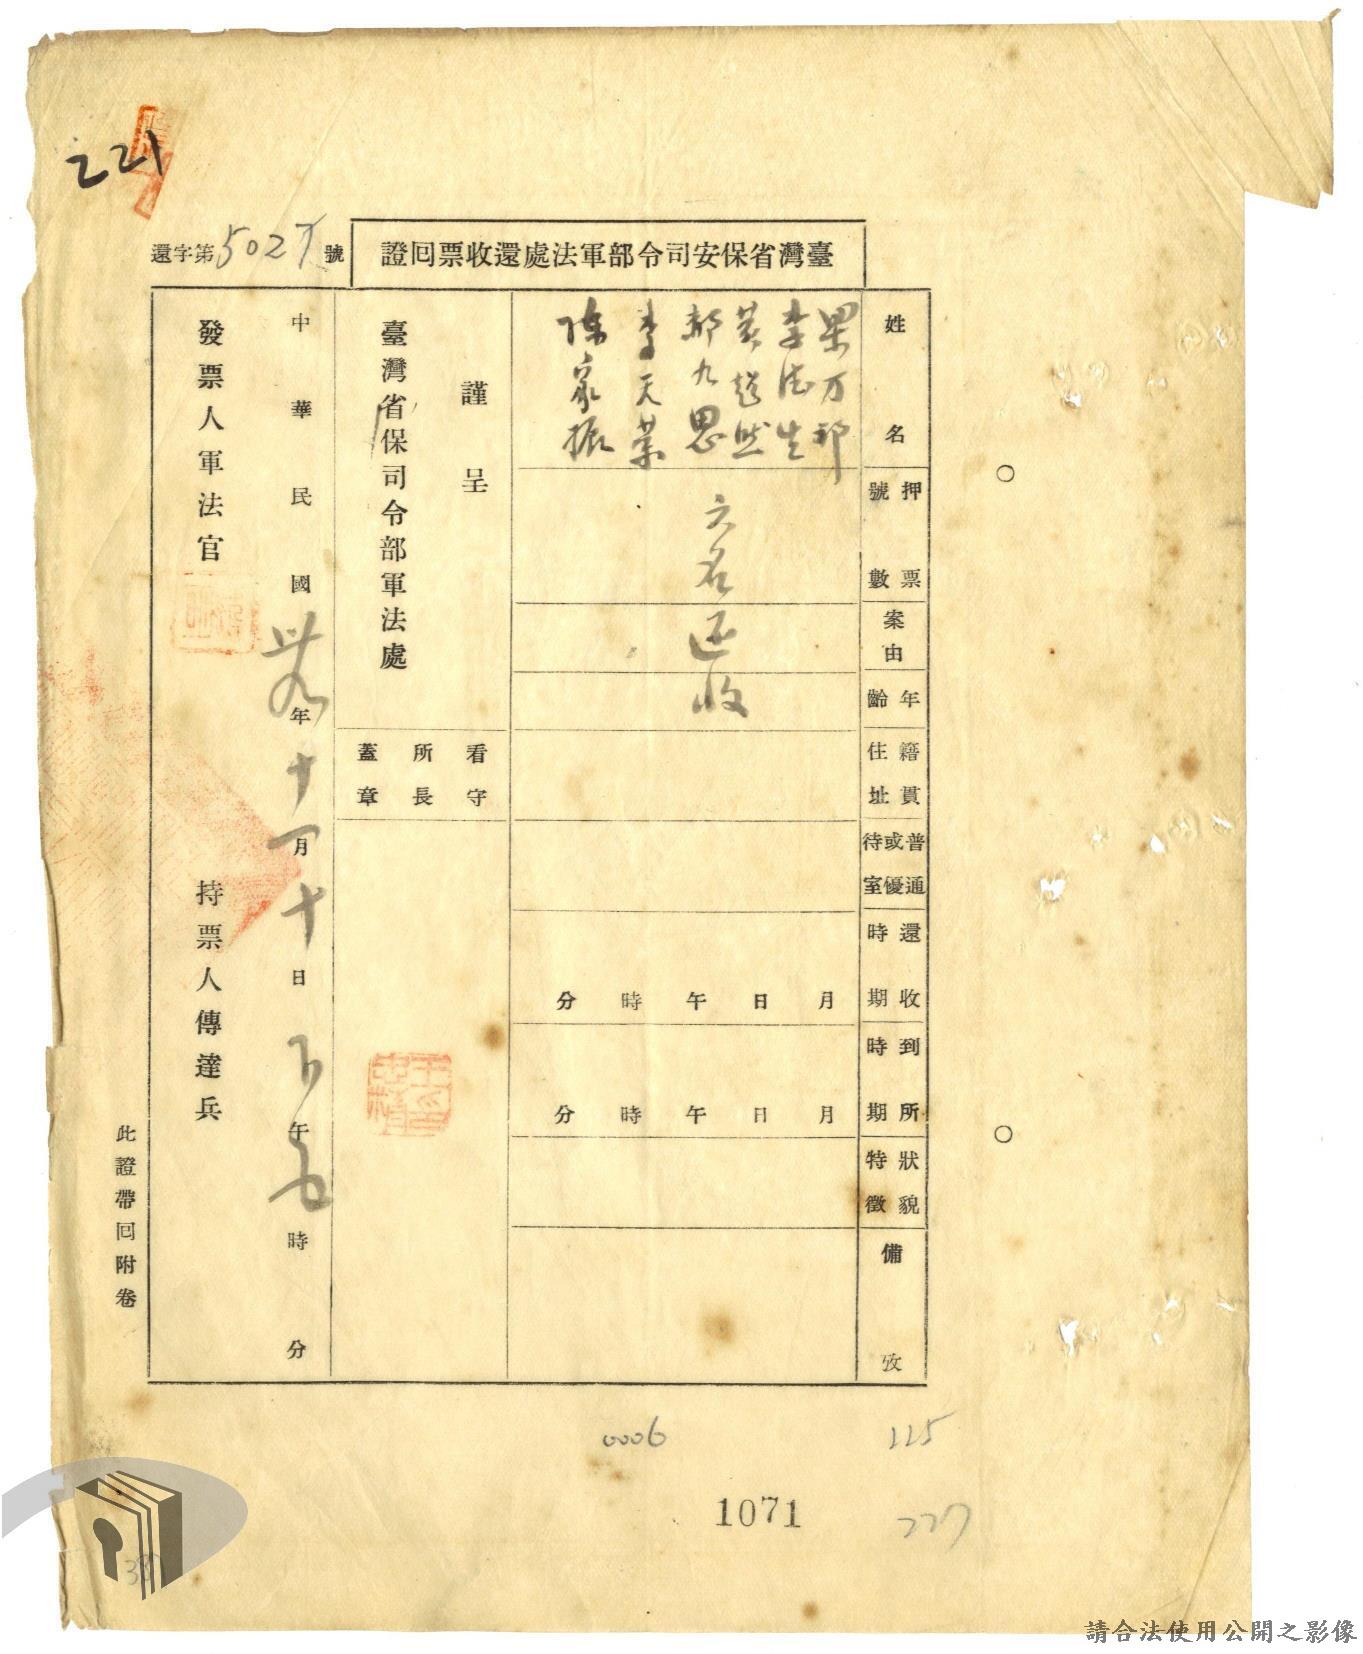 221
臺灣省保安司令部軍法處還收票回證
還字第5027號
姓名
押票號數
案由
年齡
籍貫住址
普通或優待室
還收時期
到所時期
狀貌特徵
備攷
梁万祁
李德生
黃超然
郝九思
李天榮
陳家振
六名还收
月日午時分
月日午時分
謹呈
臺灣省保司令部軍法處
看守所長蓋章
中華民國卅九年十一月十日下午五時分
發票人軍法官
持票人傳達兵
此證帶回附卷
0006
115
1071
227
請合法使用公開之影像